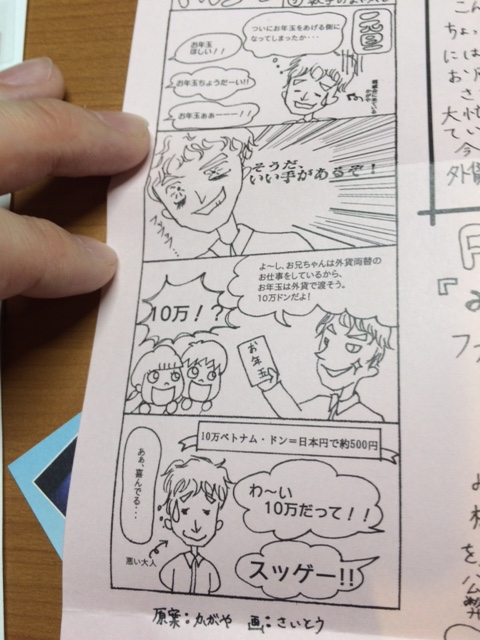 ついにお年玉をあげる側に
なってしまったか・・・
一元日
お年玉
ほしい！！
お年玉ちょうだーい!!
お年玉ぁぁーーー！！
そうだ、
いい手があるぞ！
よ〜し、お兄ちゃんは外貨両替の
お仕事をしているから、
お年玉は外貨で渡そう。
10万ドンだよ！
10万！？
お年玉
10万ベトナム・ドン＝日本円で約500円
あぁ、喜んでる・・・
わ〜い
10万だって！！
悪い大人
スッゲー!!
原案：かがや 画：さいとう
こん
ちょっ
には
さ
大忙
てい
今
外貨
『
フ
よ
を